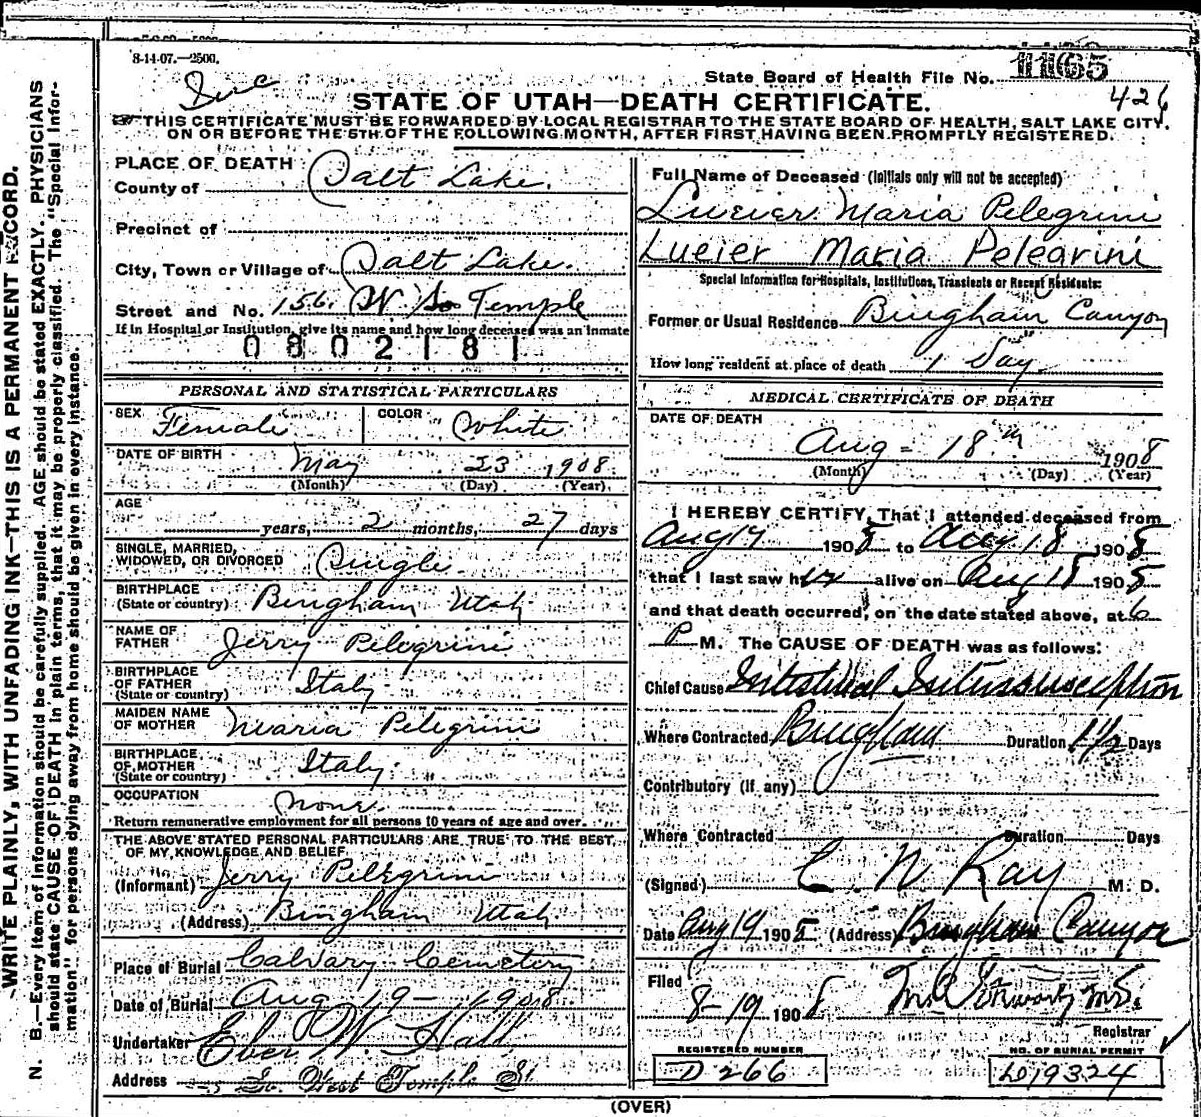 8-14-07.—2500.
State Board of Health File No. 1165
426
STATE OF UTAH—DEATH CERTIFICATE.
THIS CERTIFICATE MUST BE FORWARDED BY LOCAL REGISTRAR TO THE STATE BOARD OF HEALTH, SALT LAKE CITY,
ON OR BEFORE THE 5TH OF THE FOLLOWING MONTH, AFTER FIRST HAVING BEEN PROMPTLY REGISTERED.
PLACE OF DEATH
County of Salt Lake.
Precinct of
City, Town or Village of Salt Lake.
Street and No. 156. W. So Temple
If in Hospital or Institution, give its name and how long deceased was an inmate
0802181
PERSONAL AND STATISTICAL PARTICULARS
SEX Female COLOR White
DATE OF BIRTH May 23 1908
(Month) (Day) (Year)
AGE
years, 2 months, 27 days
SINGLE, MARRIED,
WIDOWED, OR DIVORCED Single.
BIRTHPLACE
(State or country) Bingham Utah
NAME OF
FATHER Jerry Pelegrini
BIRTHPLACE
OF FATHER
(State or country) Italy
MAIDEN NAME
OF MOTHER Maria Pelegrini
BIRTHPLACE
OF MOTHER
(State or country) Italy
OCCUPATION None.
Return remunerative employment for all persons 10 years of age and over.
THE ABOVE STATED PERSONAL PARTICULARS ARE TRUE TO THE BEST
OF MY KNOWLEDGE AND BELIEF
(Informant) Jerry Pelegrini
(Address) Bingham Utah
Place of Burial Calvary Cemetery
Date of Burial Aug 19 - 1908
Undertaker Eber W. Hall
Address So. West Temple St
Full Name of Deceased (Initials only will not be accepted)
Lucier Maria Pelegrini
Lueier Maria Pelegrini
Special Information for Hospitals, Institutions, Transients or Recent Residents:
Former or Usual Residence Bingham Canyon
How long resident at place of death 1 Day.
MEDICAL CERTIFICATE OF DEATH
DATE OF DEATH
Aug - 18th 1908
(Month) (Day) (Year)
I HEREBY CERTIFY, That I attended deceased from
Aug 17 1908 to Aug 18 1908
that I last saw her alive on Aug 18 1908
and that death occurred, on the date stated above, at 6
P M. The CAUSE OF DEATH was as follows:
Chief Cause Intestinal Intussusception
Where Contracted Bingham Duration 1 1/2 Days
Contributory (if any)
Where Contracted Duration Days
(Signed) C. N. Ray M. D.
Date Aug 19 1908 (Address) Bingham Canyon
Filed
8-19 1908
Registrar
REGISTERED NUMBER
D 266
NO. OF BURIAL PERMIT
19324
(OVER)
WRITE PLAINLY, WITH UNFADING INK—THIS IS A PERMANENT RECORD.
N. B.—Every item of information should be carefully supplied. AGE should be stated EXACTLY. PHYSICIANS
should state CAUSE OF DEATH in plain terms, that it may be properly classified. The "Special Infor-
mation" for persons dying away from home should be given in every instance.